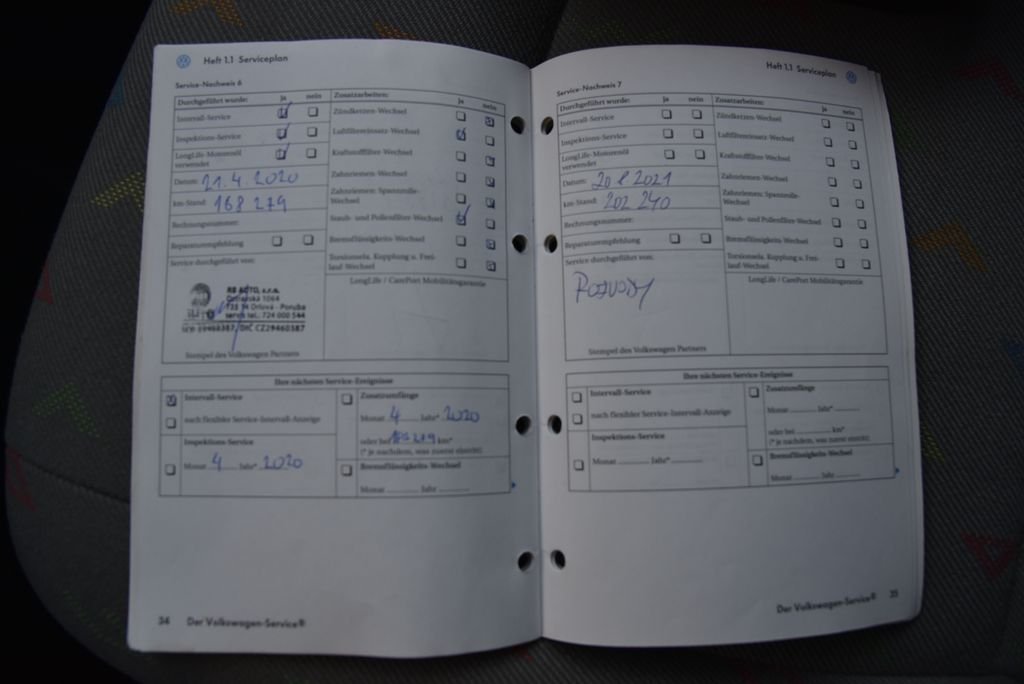 Heft 1.1 Serviceplan
Service-Nachweis 6
Durchgeführt wurde: ja nein
Intervall-Service
Inspektions-Service
LongLife-Motorenöl verwendet
Datum: 21.4.2020
km-Stand: 168 279
Rechnungsnummer:
Reparaturempfehlung
Service durchgeführt von:
RB AUTO, s.r.o.
Ostravská 1064
735 14 Orlová - Poruba
servis tel.: 724 000 544
DIČ CZ29460387
Stempel des Volkswagen Partners
Zusatzarbeiten: ja nein
Zündkerzen-Wechsel
Luftfiltereinsatz-Wechsel
Kraftstofffilter-Wechsel
Zahnriemen-Wechsel
Zahnriemen: Spannrolle-
Wechsel
Staub- und Pollenfilter-Wechsel
Bremsflüssigkeits-Wechsel
Torsionsela. Kupplung u. Frei-
lauf-Wechsel
LongLife / CarePort Mobilitätsgarantie
Ihre nächsten Service-Ereignisse
Intervall-Service
nach flexibler Service-Intervall-Anzeige
Inspektions-Service
Monat 4 Jahr* 2020
Zusatzumfänge
Monat 4 Jahr* 2020
oder bei 279 km*
(* je nachdem, was zuerst eintritt)
Bremsflüssigkeits-Wechsel
Monat Jahr
34 Der Volkswagen-Service®
Heft 1.1 Serviceplan
Service-Nachweis 7
Durchgeführt wurde: ja nein
Intervall-Service
Inspektions-Service
LongLife-Motorenöl
verwendet
Datum: 20 8 2021
km-Stand: 202 240
Rechnungsnummer:
Reparaturempfehlung
Service durchgeführt von:
ROZVODY
Stempel des Volkswagen Partners
Zusatzarbeiten: ja nein
Zündkerzen-Wechsel
Luftfiltereinsatz-Wechsel
Kraftstofffilter-Wechsel
Zahnriemen-Wechsel
Zahnriemen: Spannrolle-
Wechsel
Staub- und Pollenfilter-Wechsel
Bremsflüssigkeits-Wechsel
Torsionsela. Kupplung u. Frei-
lauf-Wechsel
LongLife / CarePort Mobilitätsgarantie
Ihre nächsten Service-Ereignisse
Intervall-Service
nach flexibler Service-Intervall-Anzeige
Inspektions-Service
Monat Jahr*
Zusatzumfänge
Monat Jahr*
oder bei km*
(* je nachdem, was zuerst eintritt)
Bremsflüssigkeits-Wechsel
Monat Jahr
Der Volkswagen-Service® 35